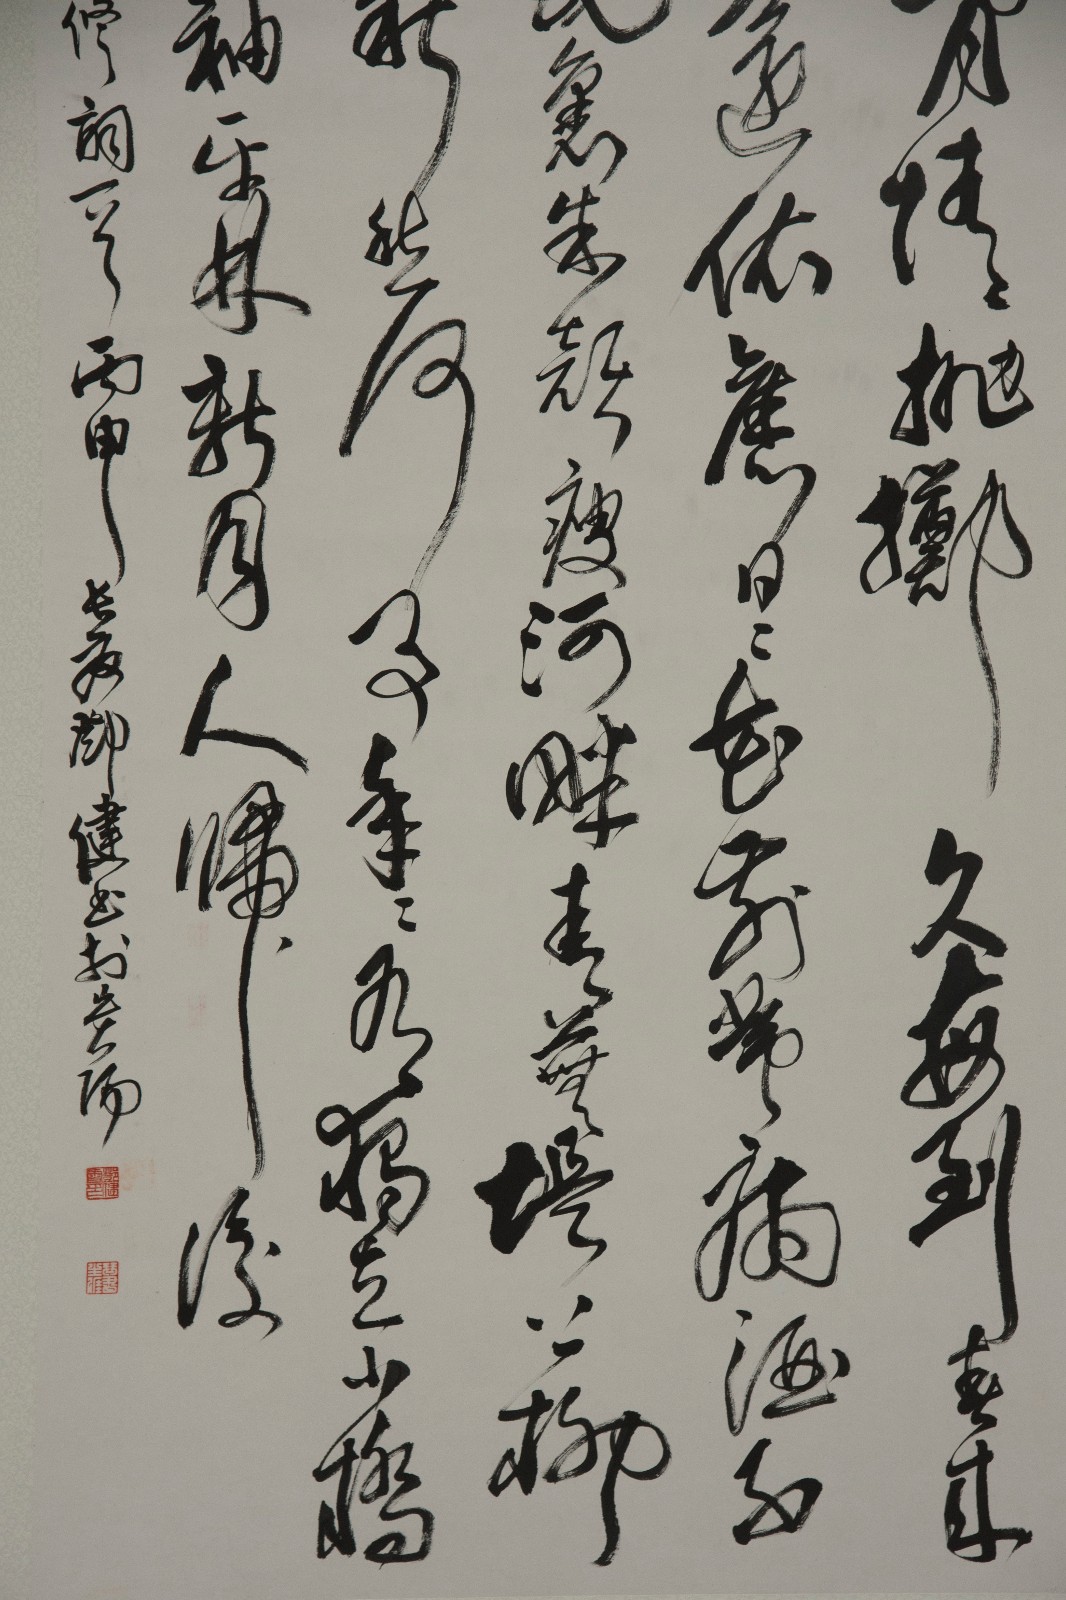 情拋擲久每到春來
還依舊日〻花前常病酒不
裏朱顏瘦河畔青蕪堤上柳
新愁何事年〻有獨立小橋
袖平林新月人歸後
修詞一首丙申長夏鄧健書於貴陽